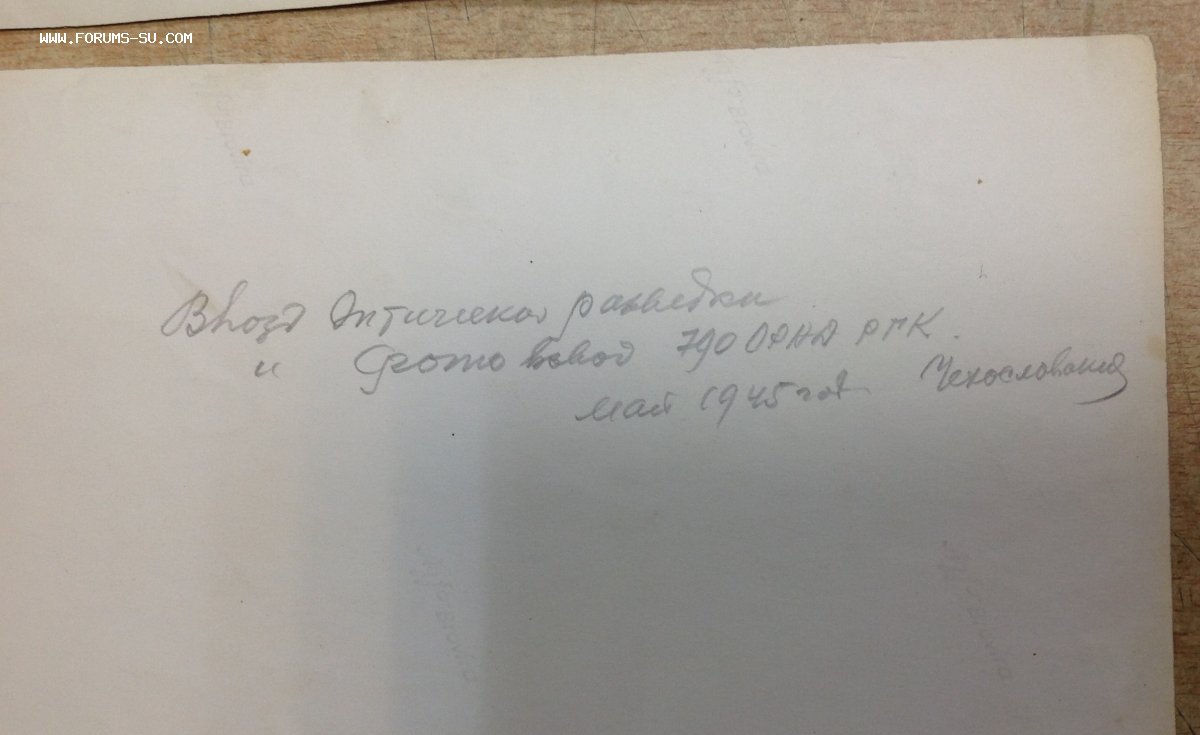 WWW.FORUMS-SU.COM
Взвод Оптической разведки
и Фото взвод 790 ОРАД РГК.
май 1945 год Чехословакия